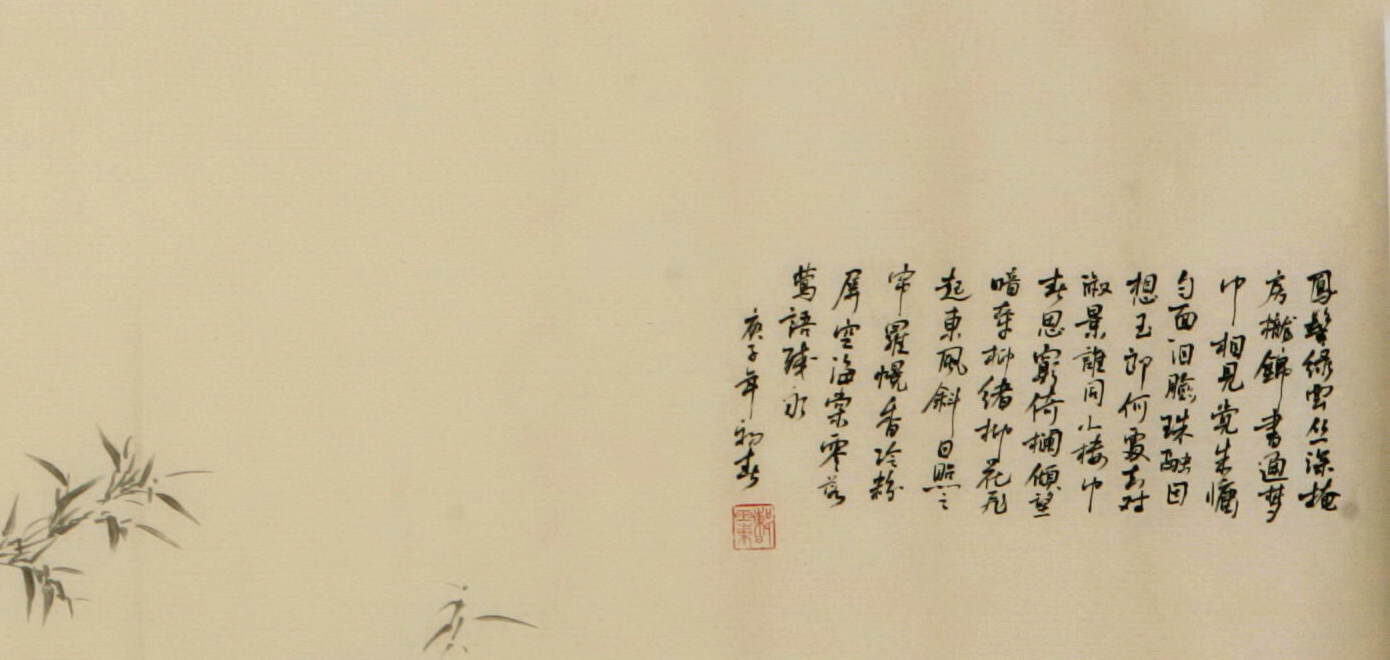 鳳髻綠雲丛深掩
房櫳錦書通梦
中相見觉来慵
匀面泪臉珠融因
想玉郎何處去对
淑景誰同小楼中
春思窮倚欄傾望
暗牽柳绪柳花飛
起東風斜日照之
帘羅幌香冷粉
屏空海棠零落
鶯語残
庚子年初春